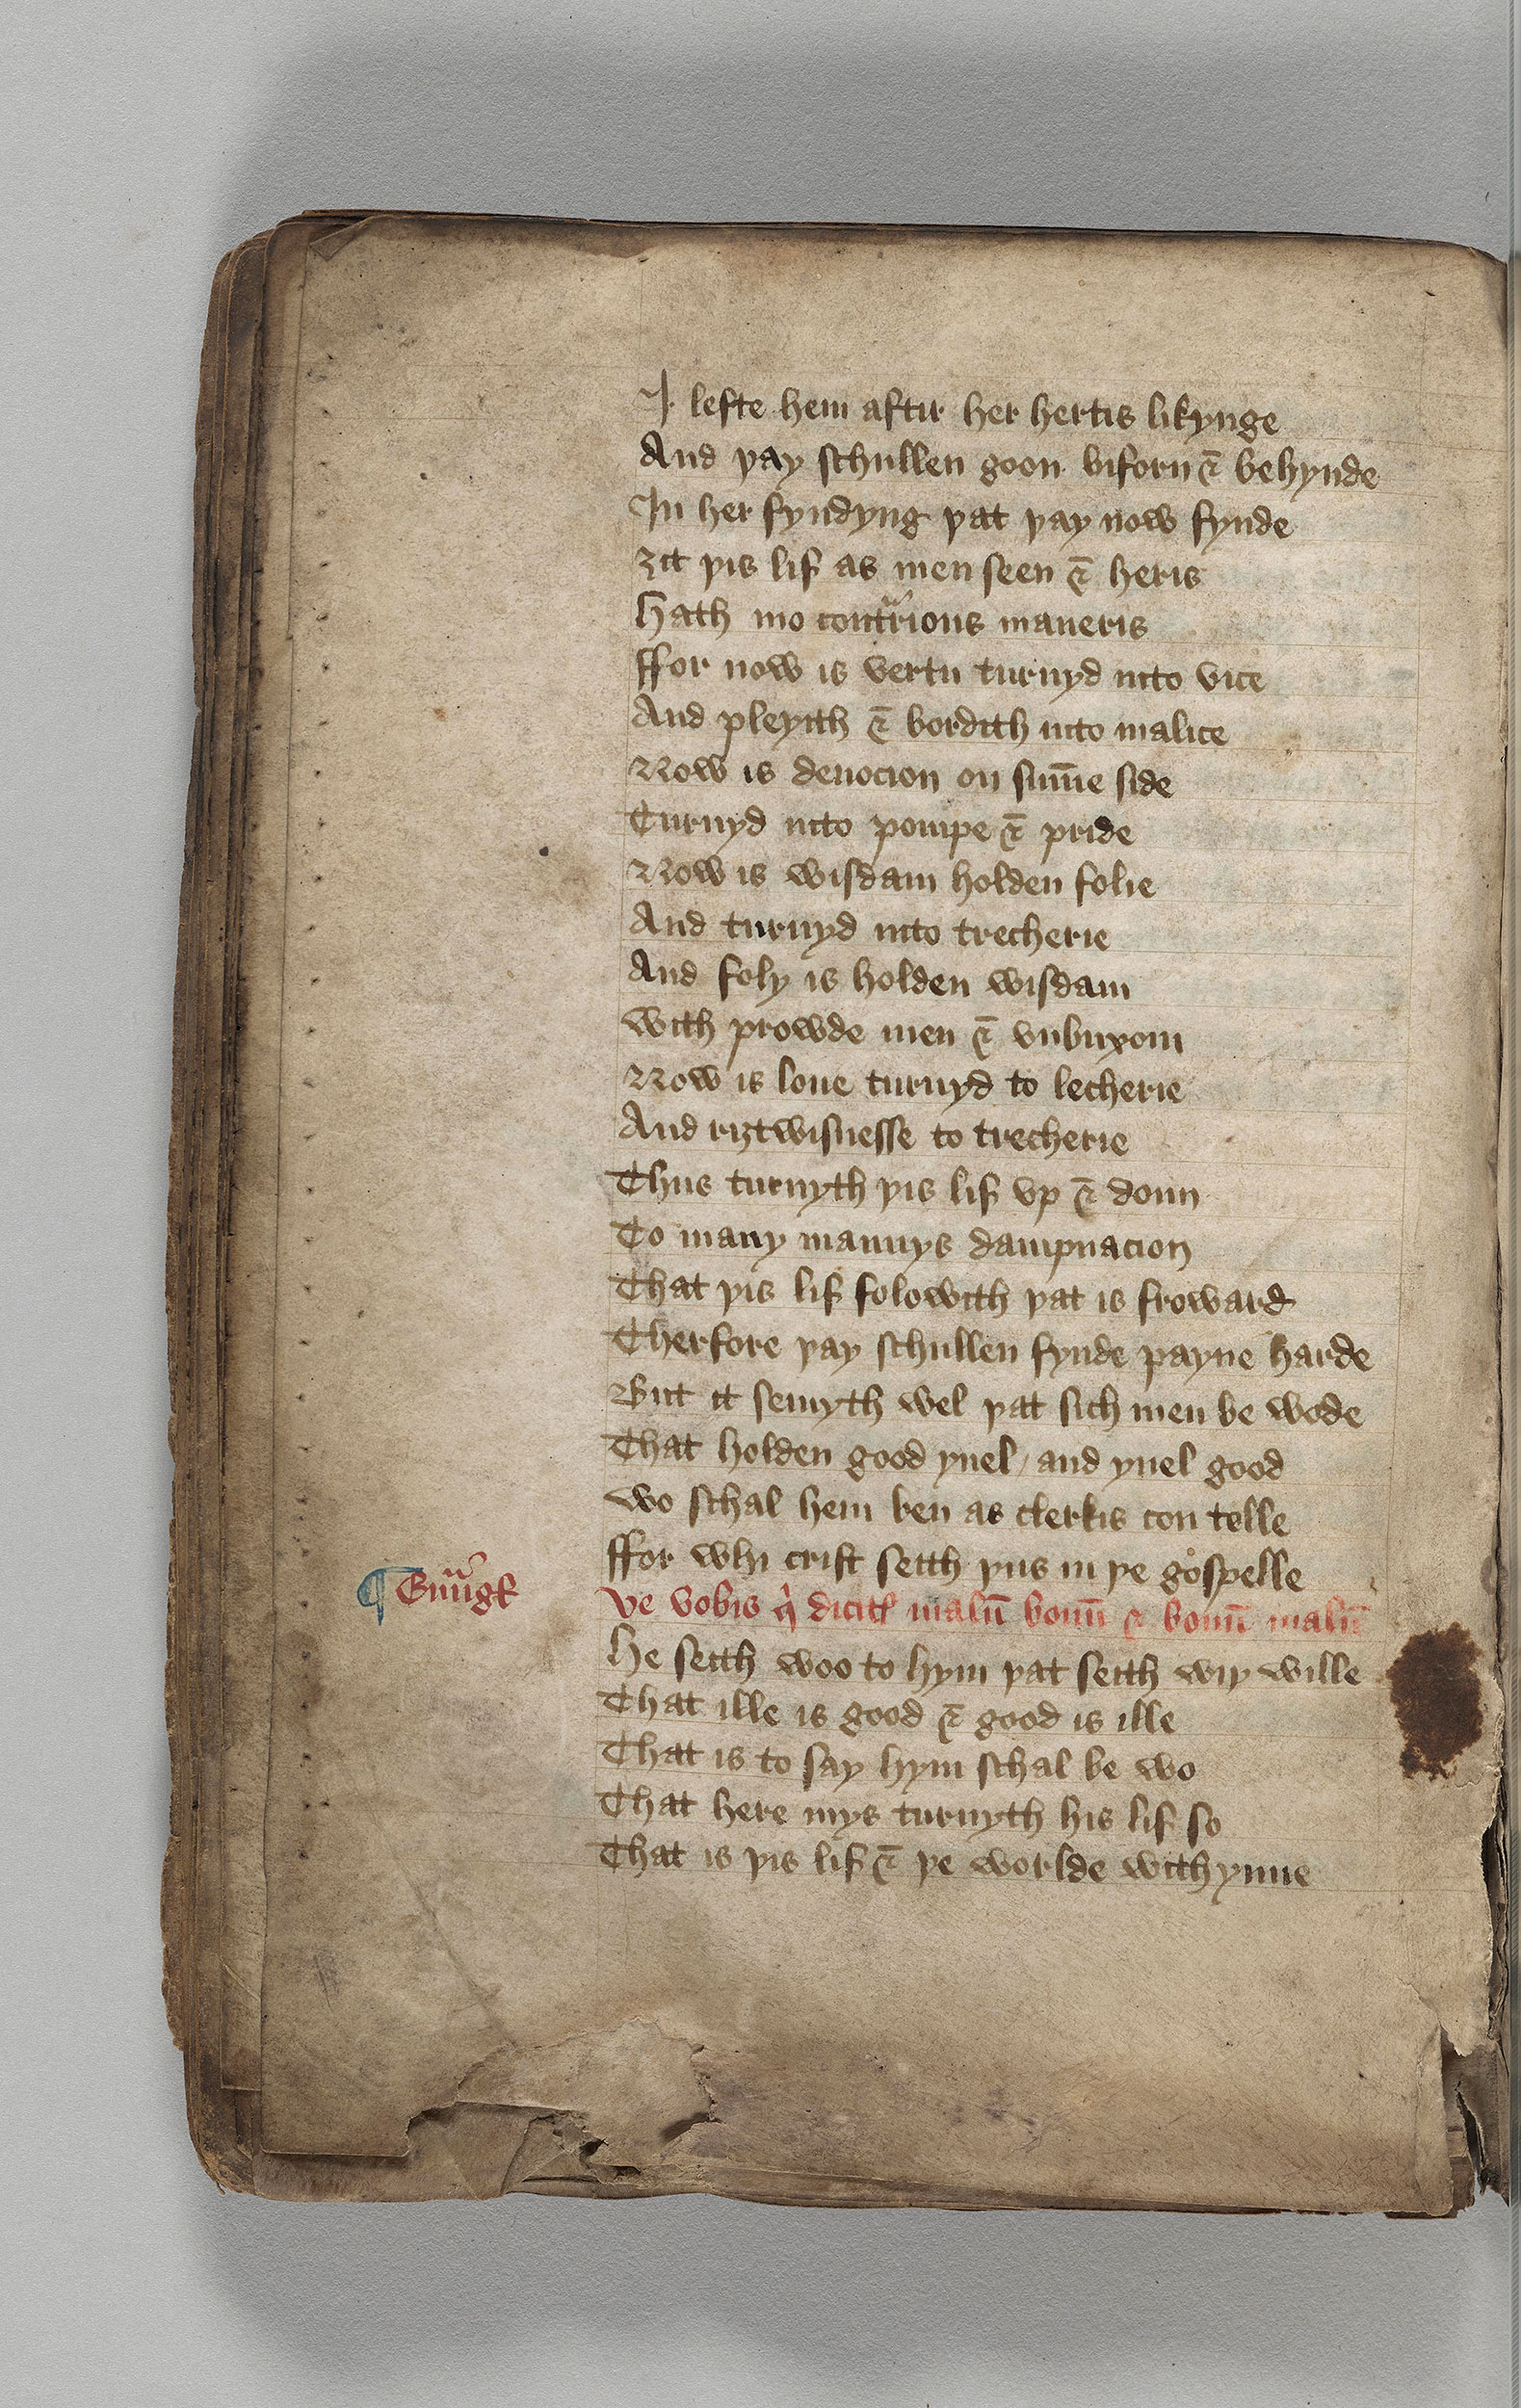 I lefte hem aftir her hertis likynge
And þay schullen goon biforn & behynde
In her fyndyng þat þay now fynde
ȝit þis lif as men seen & heris
Hath mo contᵃrious maneris
ffor now is vertu turnyd into vice
And pleyith & bordith into malice
Now is deuocion on su̅me side
Turnyd into pompe & pride
Now is wisdam holden folie
And turnyd into trecherie
And foly is holden wisdam
with prowde men & vnbuxom
Now is loue turnyd to lecherie
And riȝtwisnesse to trecherie
Thus turnyth þis lif vp & doun
To many mannys dampnacion
That þis lif folowith þat is froward
Therfore þay schullen fynde payne harde
But it semyth wel þat sich men be wode
That holden good yuel / and yuel good
wo schal hem ben as clerkis con telle
ffor whi crist seith þus in þe gospelle
¶ Euᵃngꝭ
ve vobis qⁱ dicitꝭ malū bonū & bonū malū
He seith woo to hym þat seith wiþ wille
That ille is good & good is ille
That is to say hym schal be wo
That here mys turnyth his lif so
That is þis lif & þe worlde withynne